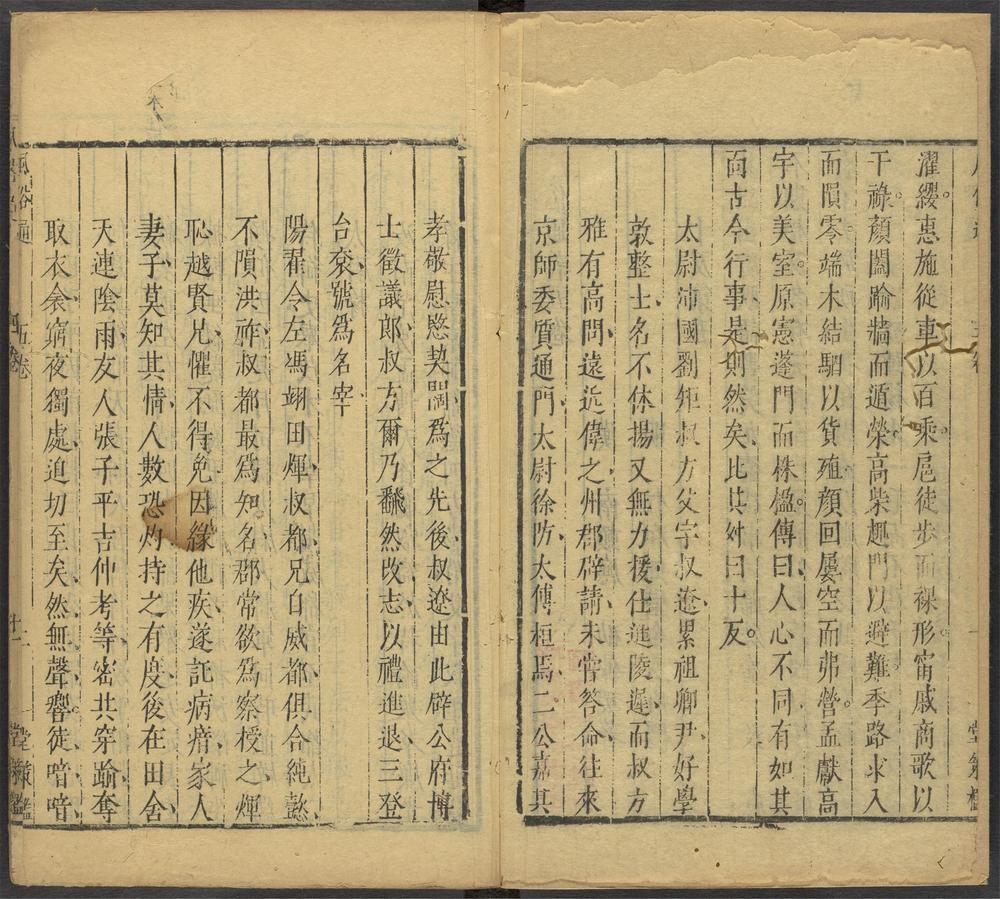 濯纓。惠施從車以百乘。扈徒步而裸形。甯戚商歌以
干祿。顏闔踰牆而遁榮。高柴趣門以避難。季路求入
而隕零。端木結駟以貨殖。顏回屢空而弗營。孟獻高
宇以美室。原憲蓬門而株楹。傳曰、人心不同有如其
面古今行事是則然矣、比其舛曰十反。
太尉沛國劉矩叔方父字叔遼累祖卿尹、好學
敦整、士名不休揚又無力援、仕進陵遲、而叔方
雅有高問、遠近偉之州郡辟請、未嘗答命往來
京師委質通門、太尉徐防、太傅桓焉、二公嘉其
孝敬慰愍契闊、爲之先後、叔遼由此辟公府博
士徵議郎、叔方爾乃飜然改志、以禮進退、三登
台袞、號爲名宰、
陽翟令左馮翊田煇、叔都兄白威都、俱合純懿、
不隕洪祚、叔都最爲知名、郡常欲爲察授之、煇
恥越賢兄、懼不得免、因緣他疾、遂託病瘖、家人
妻子、莫知其情、人數恐灼、持之有度、後在田舍、
天連陰雨、友人張子平吉仲考等、密共穿踰、奪
取衣衾、窮夜獨處、迫切至矣、然無聲響、徒喑喑、